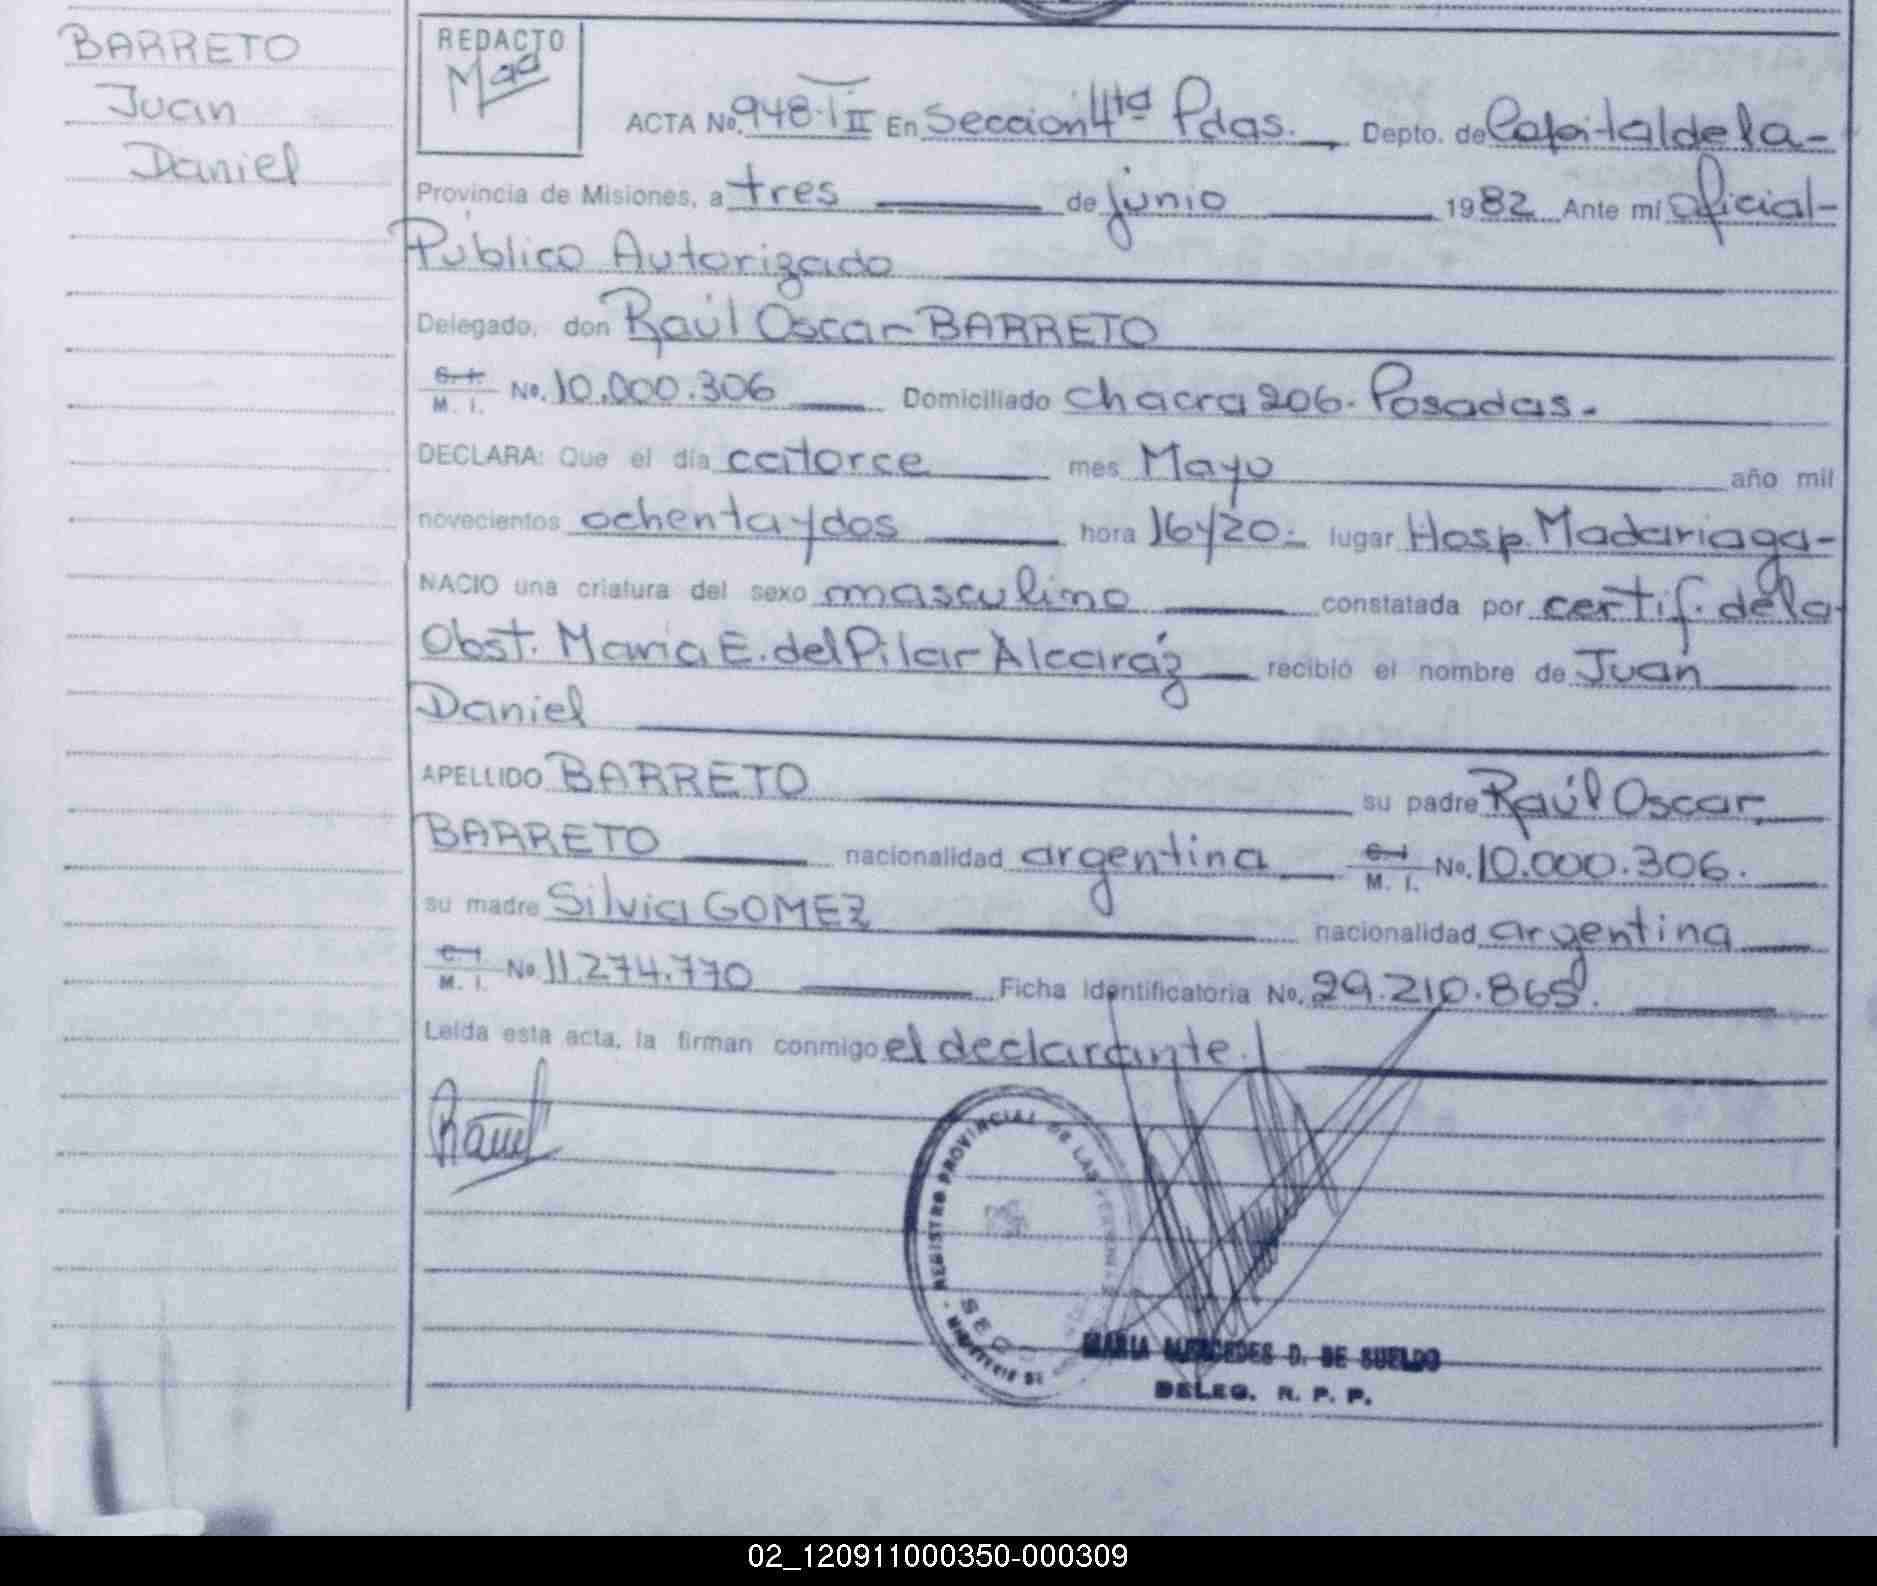 BARRETO
Juan
Daniel
REDACTO
ACTA No. 948-III En Sección 4ta Pdas. Depto. de Capital de la-
Provincia de Misiones, a tres de junio 1982 Ante mí oficial-
Público Autorizado
Delegado, don Raúl Oscar BARRETO
C. I. M. I. No. 10.000.306 Domiciliado chacra 206. Posadas.
DECLARA: Que el día catorce mes Mayo año mil
novecientos ochenta y dos hora 16y20.- lugar Hosp. Madariaga-
NACIO una criatura del sexo masculino constatada por certif. de la
Obst. María E. del Pilar Alcaráz recibió el nombre de Juan
Daniel
APELLIDO BARRETO su padre Raúl Oscar
BARRETO nacionalidad argentina C. I. M. I. No. 10.000.306.
su madre Silvia GOMEZ nacionalidad argentina
C. I. M. I. No 11.274.770 Ficha Identificatoria No. 29.210.865.
Leída esta acta, la firman conmigo el declarante.
REGISTRO PROVINCIAL DE LAS PERSONAS
MARIA MERCEDES D. DE SUELDO
DELEG. R. P. P.
02_120911000350-000309